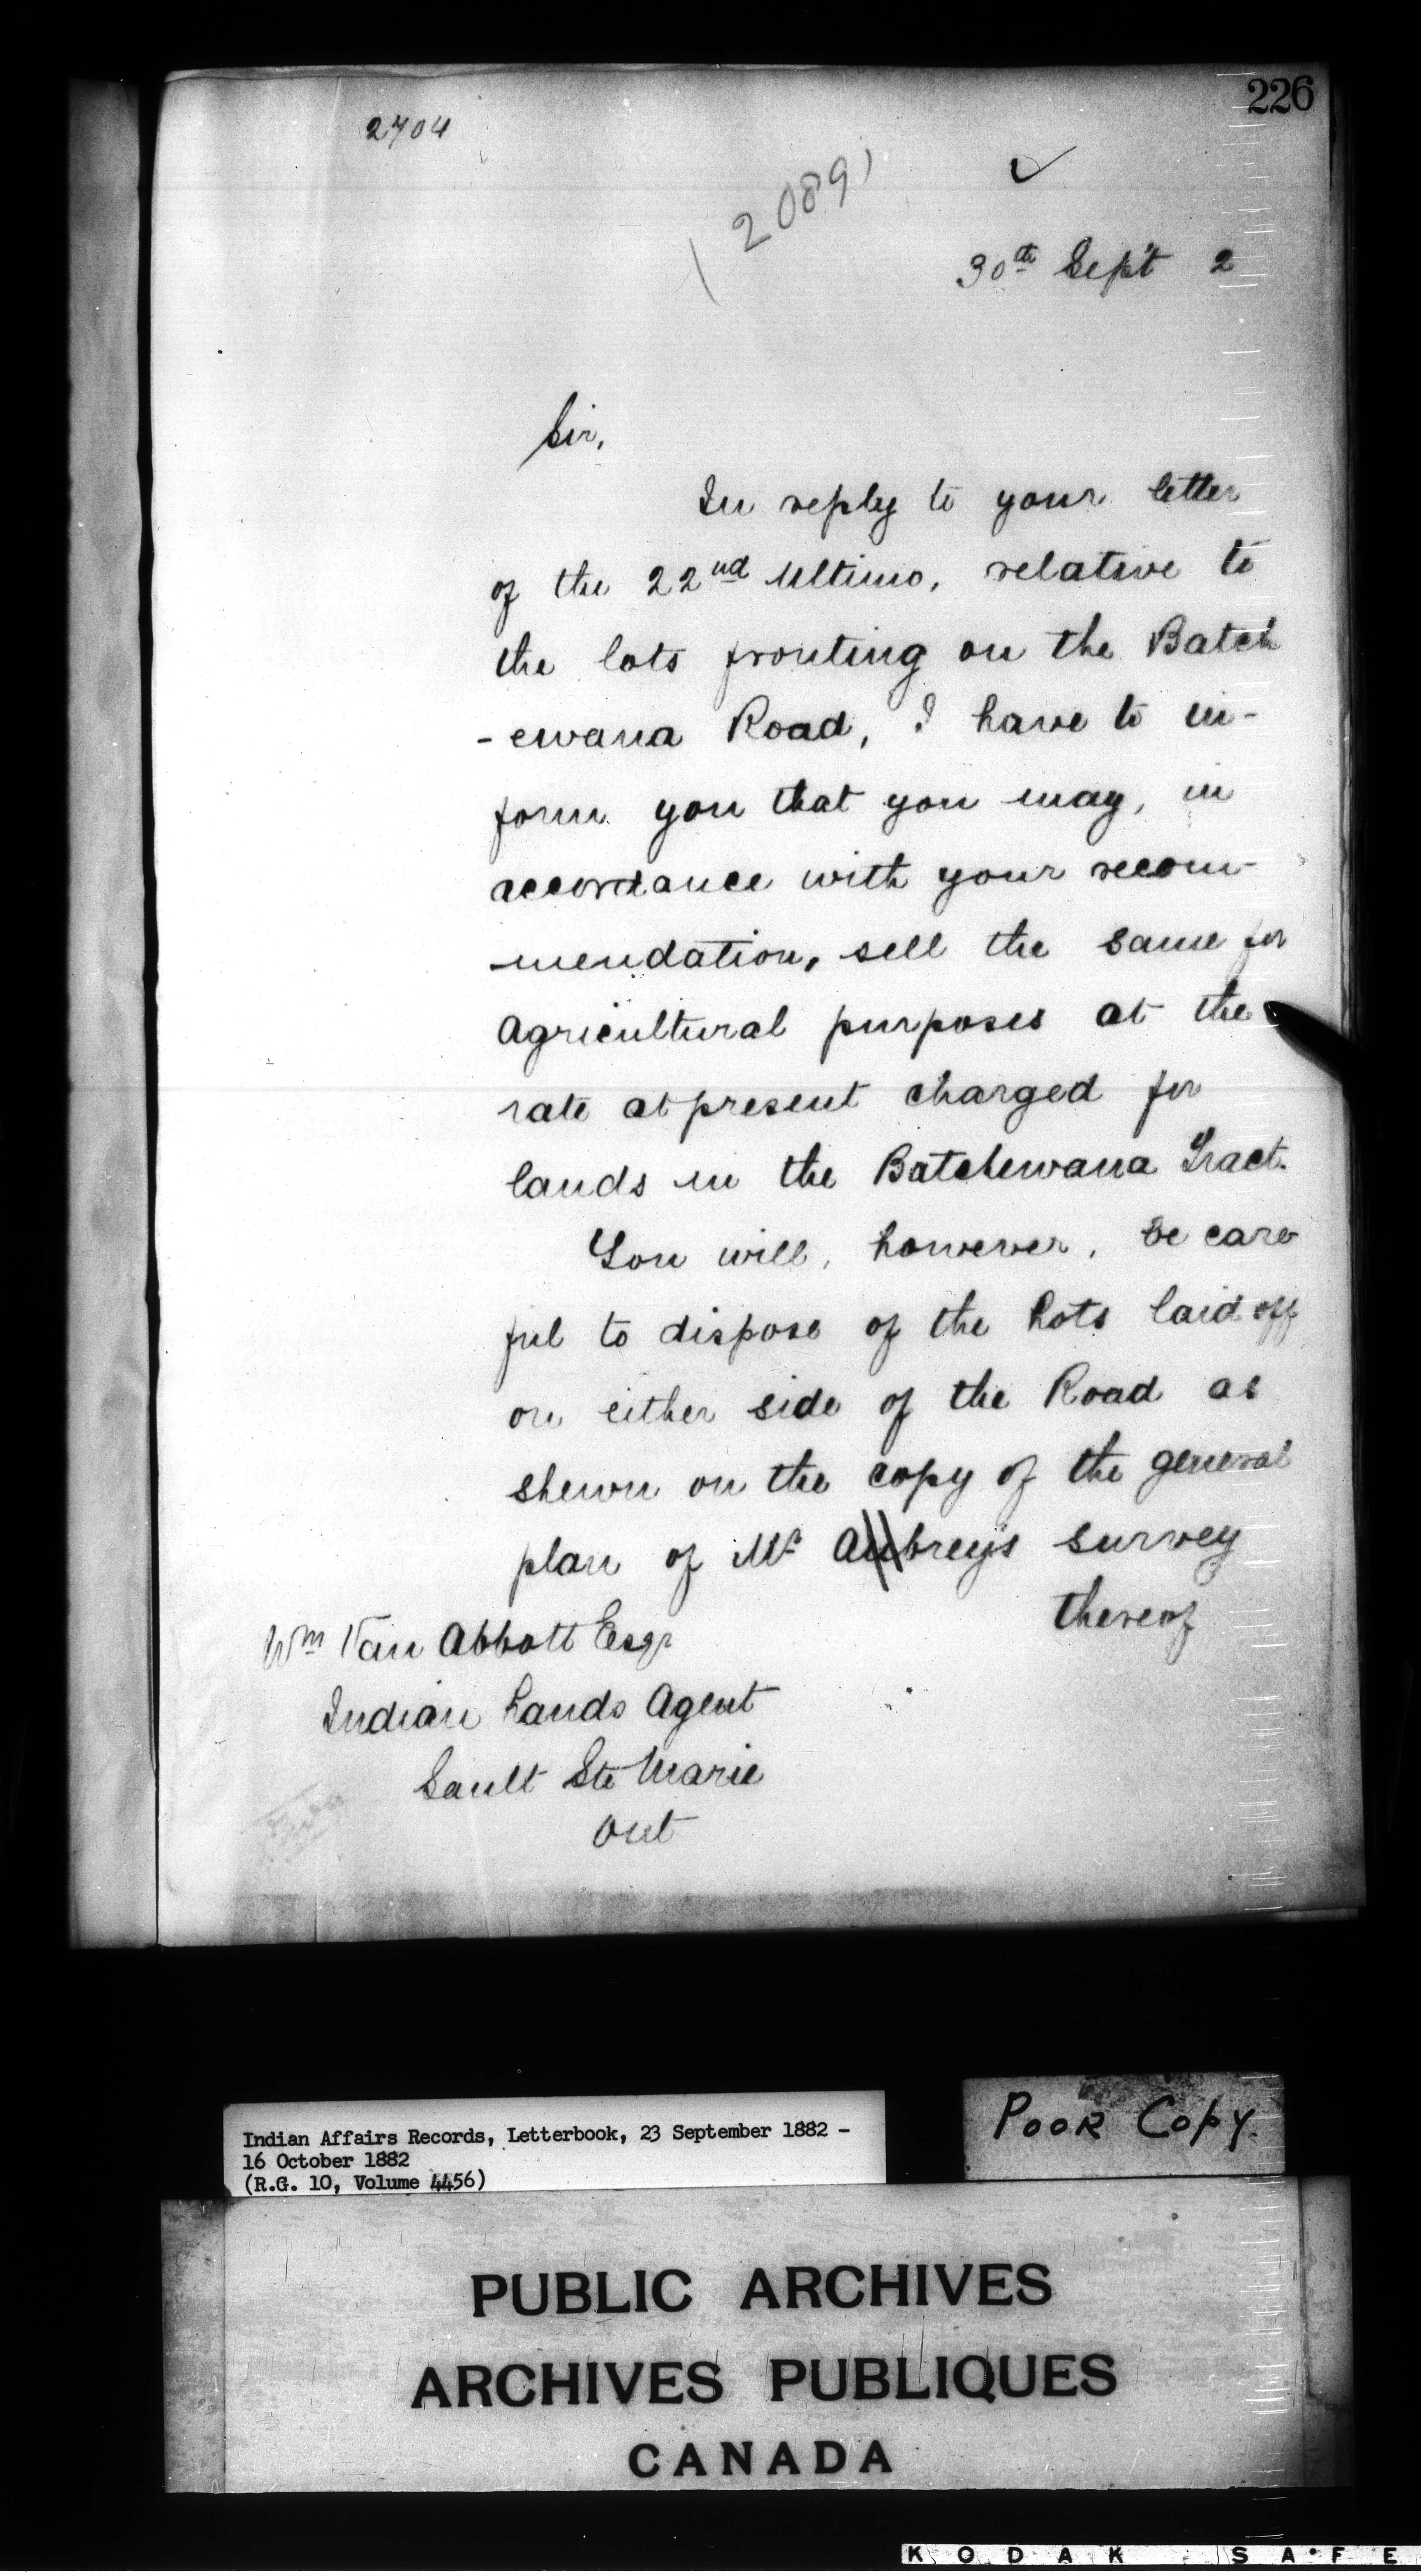 226
2704
(20891
30th Sept 2
Sir,
In reply to your letter
of the 22nd Ultimo, relative to
the lots fronting on the Batch
-ewana Road, I have to in-
form you that you may, in
accordance with your recom-
-mendation, sell the same for
agricultural purposes at the
rate at present charged for
lands in the Batchewana Tract.
You will, however, be care
ful to dispose of the Lots laid off
on either side of the Road as
shewn on the copy of the general
plan of Mr Aubrey's survey
thereof
Wm Van Abbott Esqr
Indian Lands Agent
Sault Ste Marie
Ont
Indian Affairs Records, Letterbook, 23 September 1882 -
16 October 1882
(R.G. 10, Volume 4456)
POOR COPY.
PUBLIC ARCHIVES
ARCHIVES PUBLIQUES
CANADA
KODAK SAFE